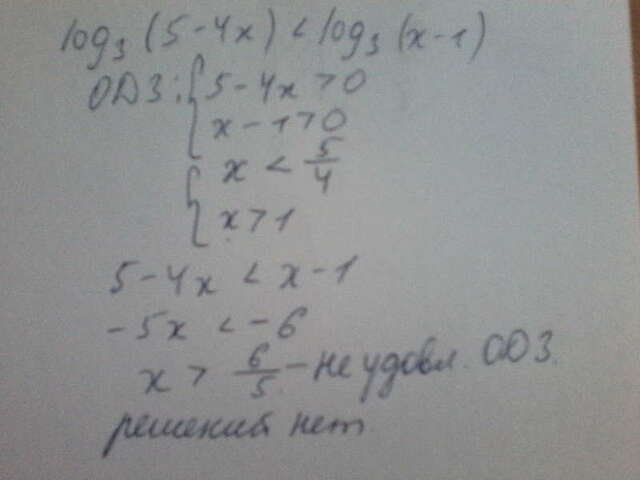 log₃(5-4x) < log₃(x-1)
ОДЗ: { 5-4x > 0
x-1 > 0
{ x < 5/4
x > 1
5-4x < x-1
-5x < -6
x > 6/5 - не удовл. ОДЗ.
решений нет